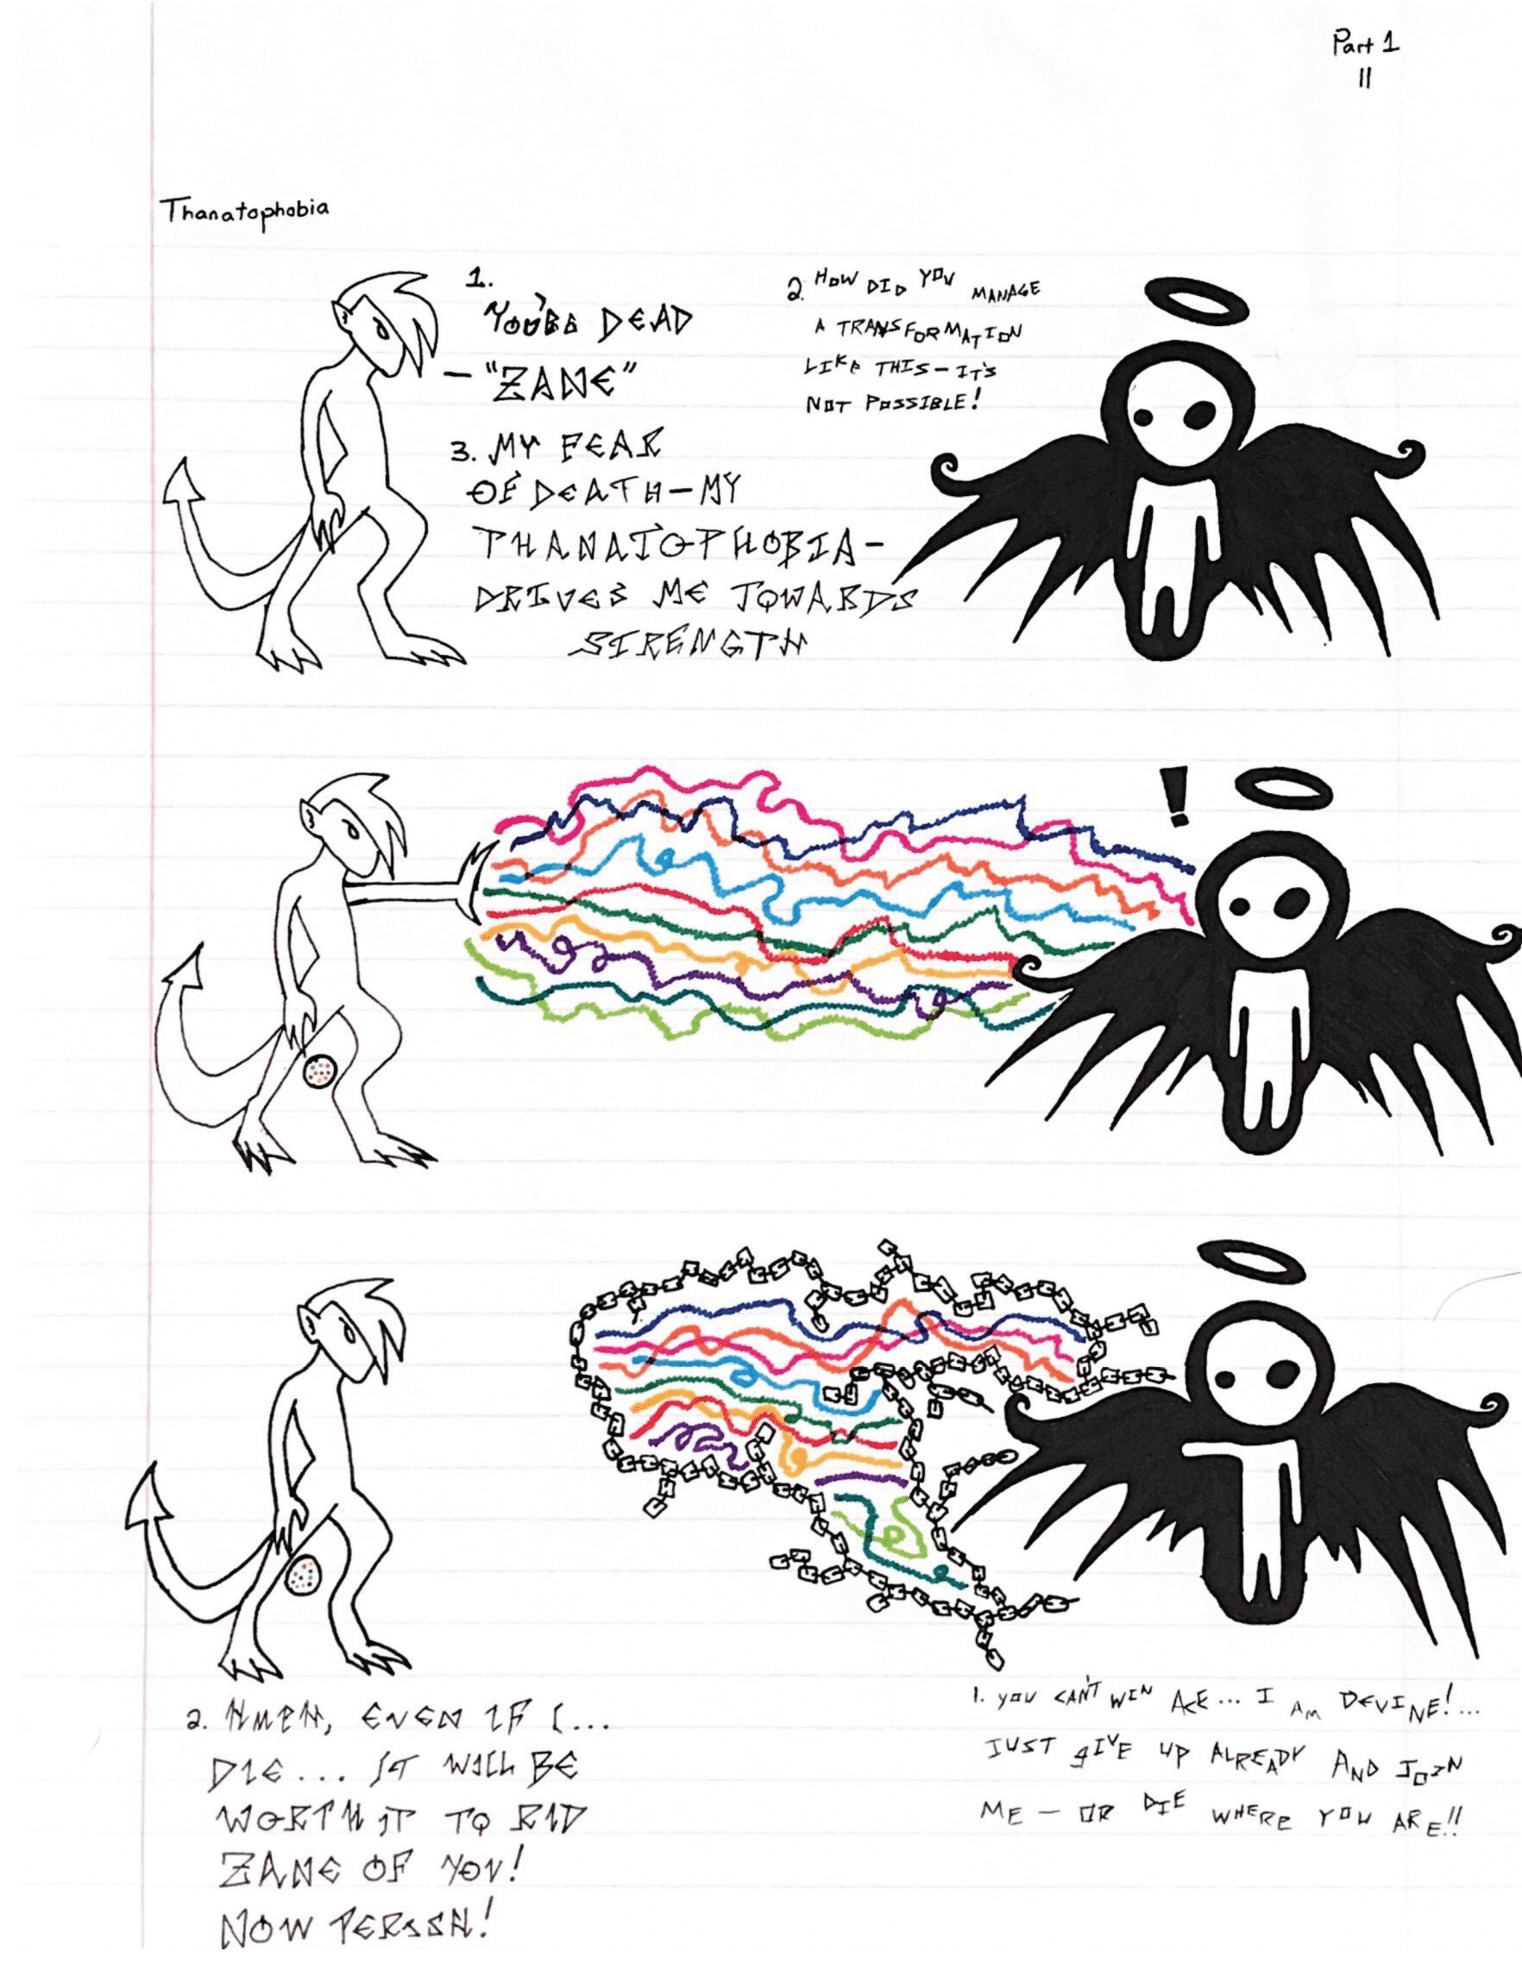 Part 1
11
Thanatophobia
1.
YOU'RE DEAD
- "ZANE"
2. HOW DID YOU MANAGE
A TRANSFORMATION
LIKE THIS - IT'S
NOT POSSIBLE!
3. MY FEAR
OF DEATH - MY
THANATOPHOBIA -
DRIVES ME TOWARDS
STRENGTH
!
1. YOU CAN'T WIN ACE... I AM DEVINE!...
JUST GIVE UP ALREADY AND JOIN
ME - OR DIE WHERE YOU ARE!!
2. HMPH, EVEN IF I...
DIE... IT WILL BE
WORTH IT TO RID
ZANE OF YOU!
NOW PERISH!